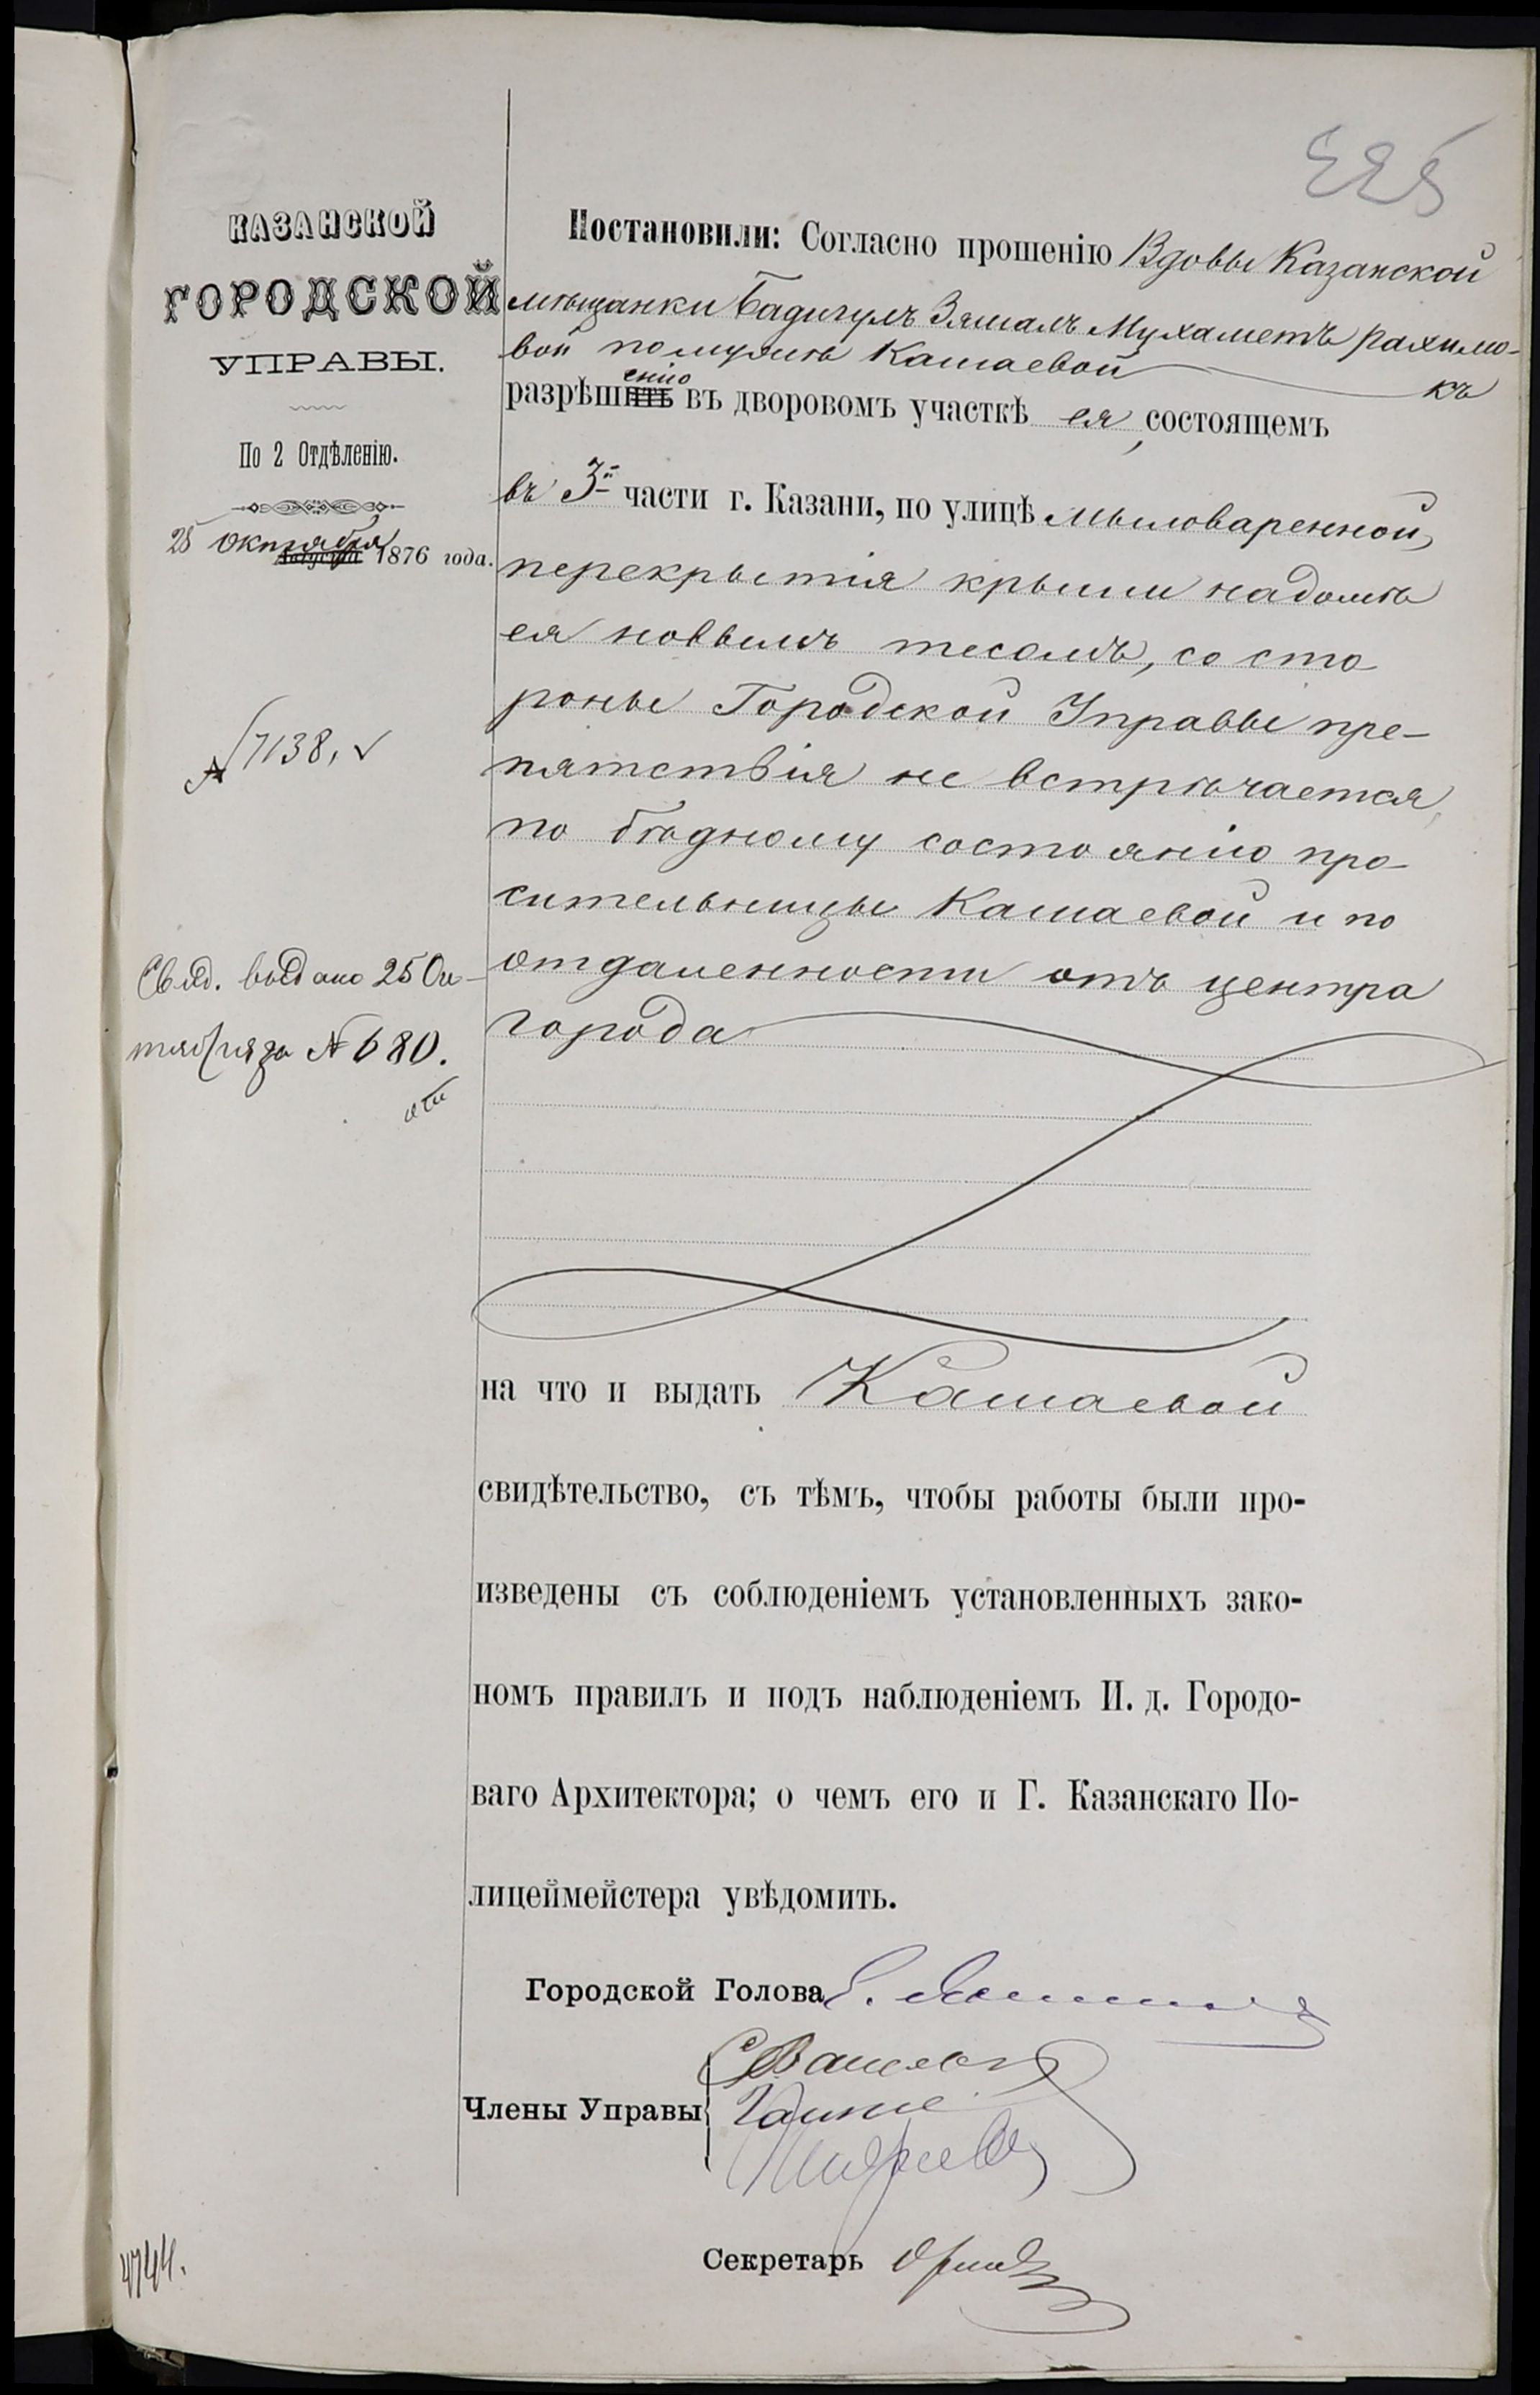 225
КАЗАНСКОЙ
ГОРОДСКОЙ
УПРАВЫ.
По 2 Отдѣленію.
25 октября
Августа 1876 года.
№ 7138,
Свид. выдано 25 Ок-
тября за № 680.
4744.
Постановили: Согласно прошенію Вдовы Казанской
мѣщанки Бадигулъ Зямалъ Мухаметъ рахимо-
вой помужѣ Кашаевой къ
разрѣшить енію въ дворовомъ участкѣ ея, состоящемъ
въ 3й части г. Казани, по улицѣ Мыловаренной,
перекрытія крыши надомѣ
ея новымъ тесомъ, со сто
роны Городской Управы пре-
пятствія не встрѣчается,
по бѣдному состоянію про-
сительницы Кашаевой и по
отдаленности отъ центра
города
на что и выдать Кашаевой
свидѣтельство, съ тѣмъ, чтобы работы были про-
изведены съ соблюденіемъ установленныхъ зако-
номъ правилъ и подъ наблюденіемъ И. д. Городо-
ваго Архитектора; о чемъ его и Г. Казанскаго По-
лицеймейстера увѣдомить.
Городской Голова
Члены Управы
Секретарь